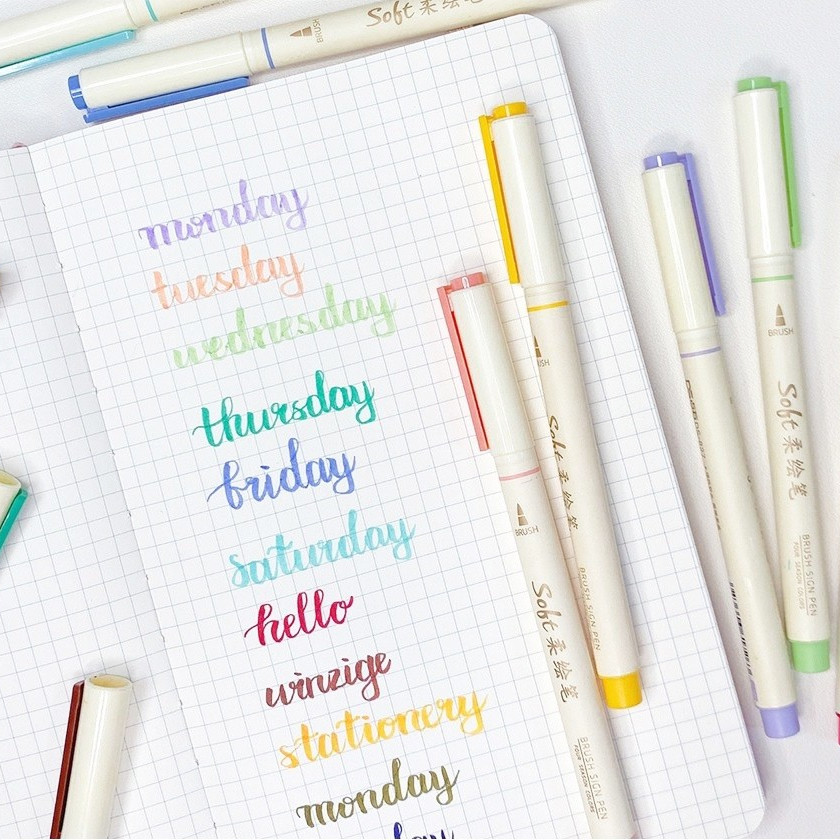 Soft 柔绘笔
BRUSH
monday
tuesday
wednesday
thursday
friday
saturday
hello
winzige
stationery
monday
BRUSH
Soft 柔绘笔
BRUSH SIGN PEN
FOUR SEASON COLORS
BRUSH
Soft 柔绘笔
BRUSH SIGN PEN
BRUSH
Soft 柔绘笔
BRUSH SIGN PEN
FOUR SEASON COLORS